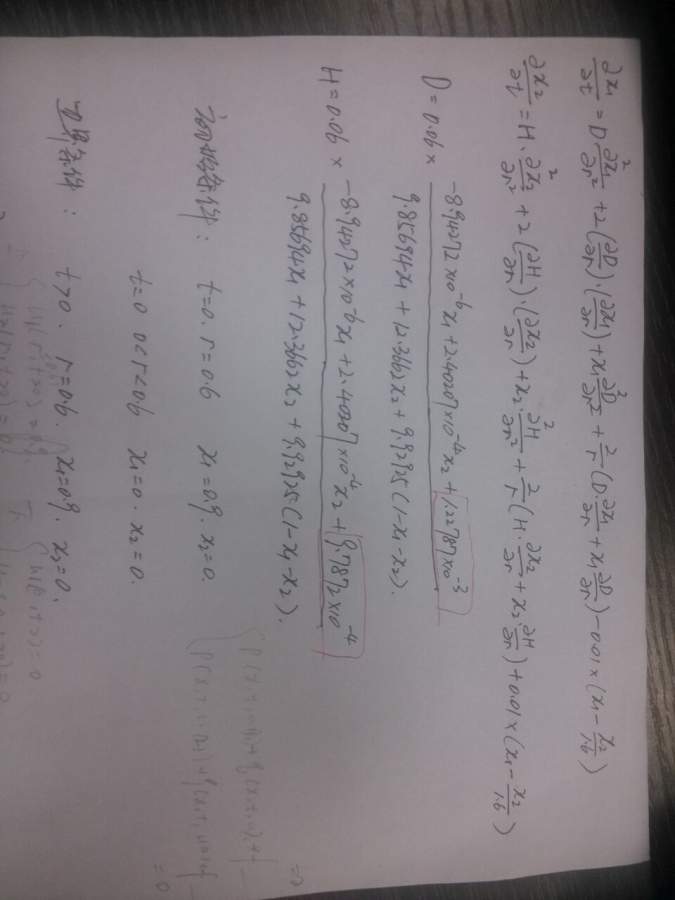 ∂x₁/∂t = D ∂²x₁/∂r² + 2(∂D/∂r)·(∂x₁/∂r) + x₁ ∂²D/∂r² + 2/r (D·∂x₁/∂r + x₁ ∂D/∂r) − 0.01×(x₁ − x₂/1.6)
∂x₂/∂t = H·∂²x₂/∂r² + 2(∂H/∂r)·(∂x₂/∂r) + x₂·∂²H/∂r² + 2/r (H·∂x₂/∂r + x₂·∂H/∂r) + 0.01×(x₁ − x₂/1.6)
D = 0.06 × (−8.94272×10⁻⁶x₁ + 2.4007×10⁻⁴x₂ + 1.22787×10⁻³) / (9.85694x₁ + 12.3662x₂ + 9.92925(1−x₁−x₂)).
H = 0.06 × (−8.94272×10⁻⁶x₁ + 2.4007×10⁻⁴x₂ + 9.7872×10⁻⁴) / (9.85694x₁ + 12.3663x₂ + 9.92925(1−x₁−x₂)).
初始条件: t=0. r=0.6 x₁=0.9. x₂=0.
t=0 0<r<0.6 x₁=0. x₂=0.
边界条件: t>0. r=0.6. x₁=0.9. x₂=0.